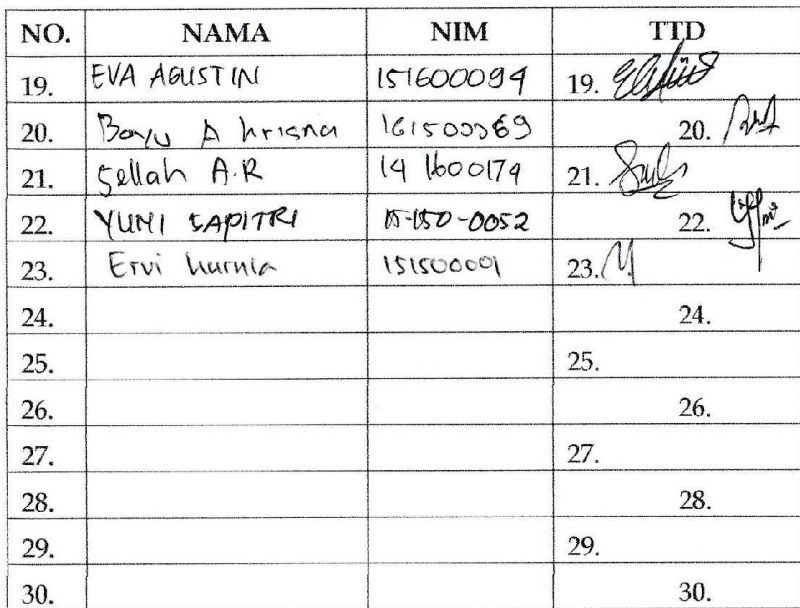 NO. NAMA NIM TTD
19. EVA AGUSTIN 151600094 19.
20. Bayu A hrisna 161500069 20.
21. Sellah A.R 141600174 21.
22. YUNI SAPITRI 15-150-0052 22.
23. Ervi kurnia 151500001 23.
24. 24.
25. 25.
26. 26.
27. 27.
28. 28.
29. 29.
30. 30.